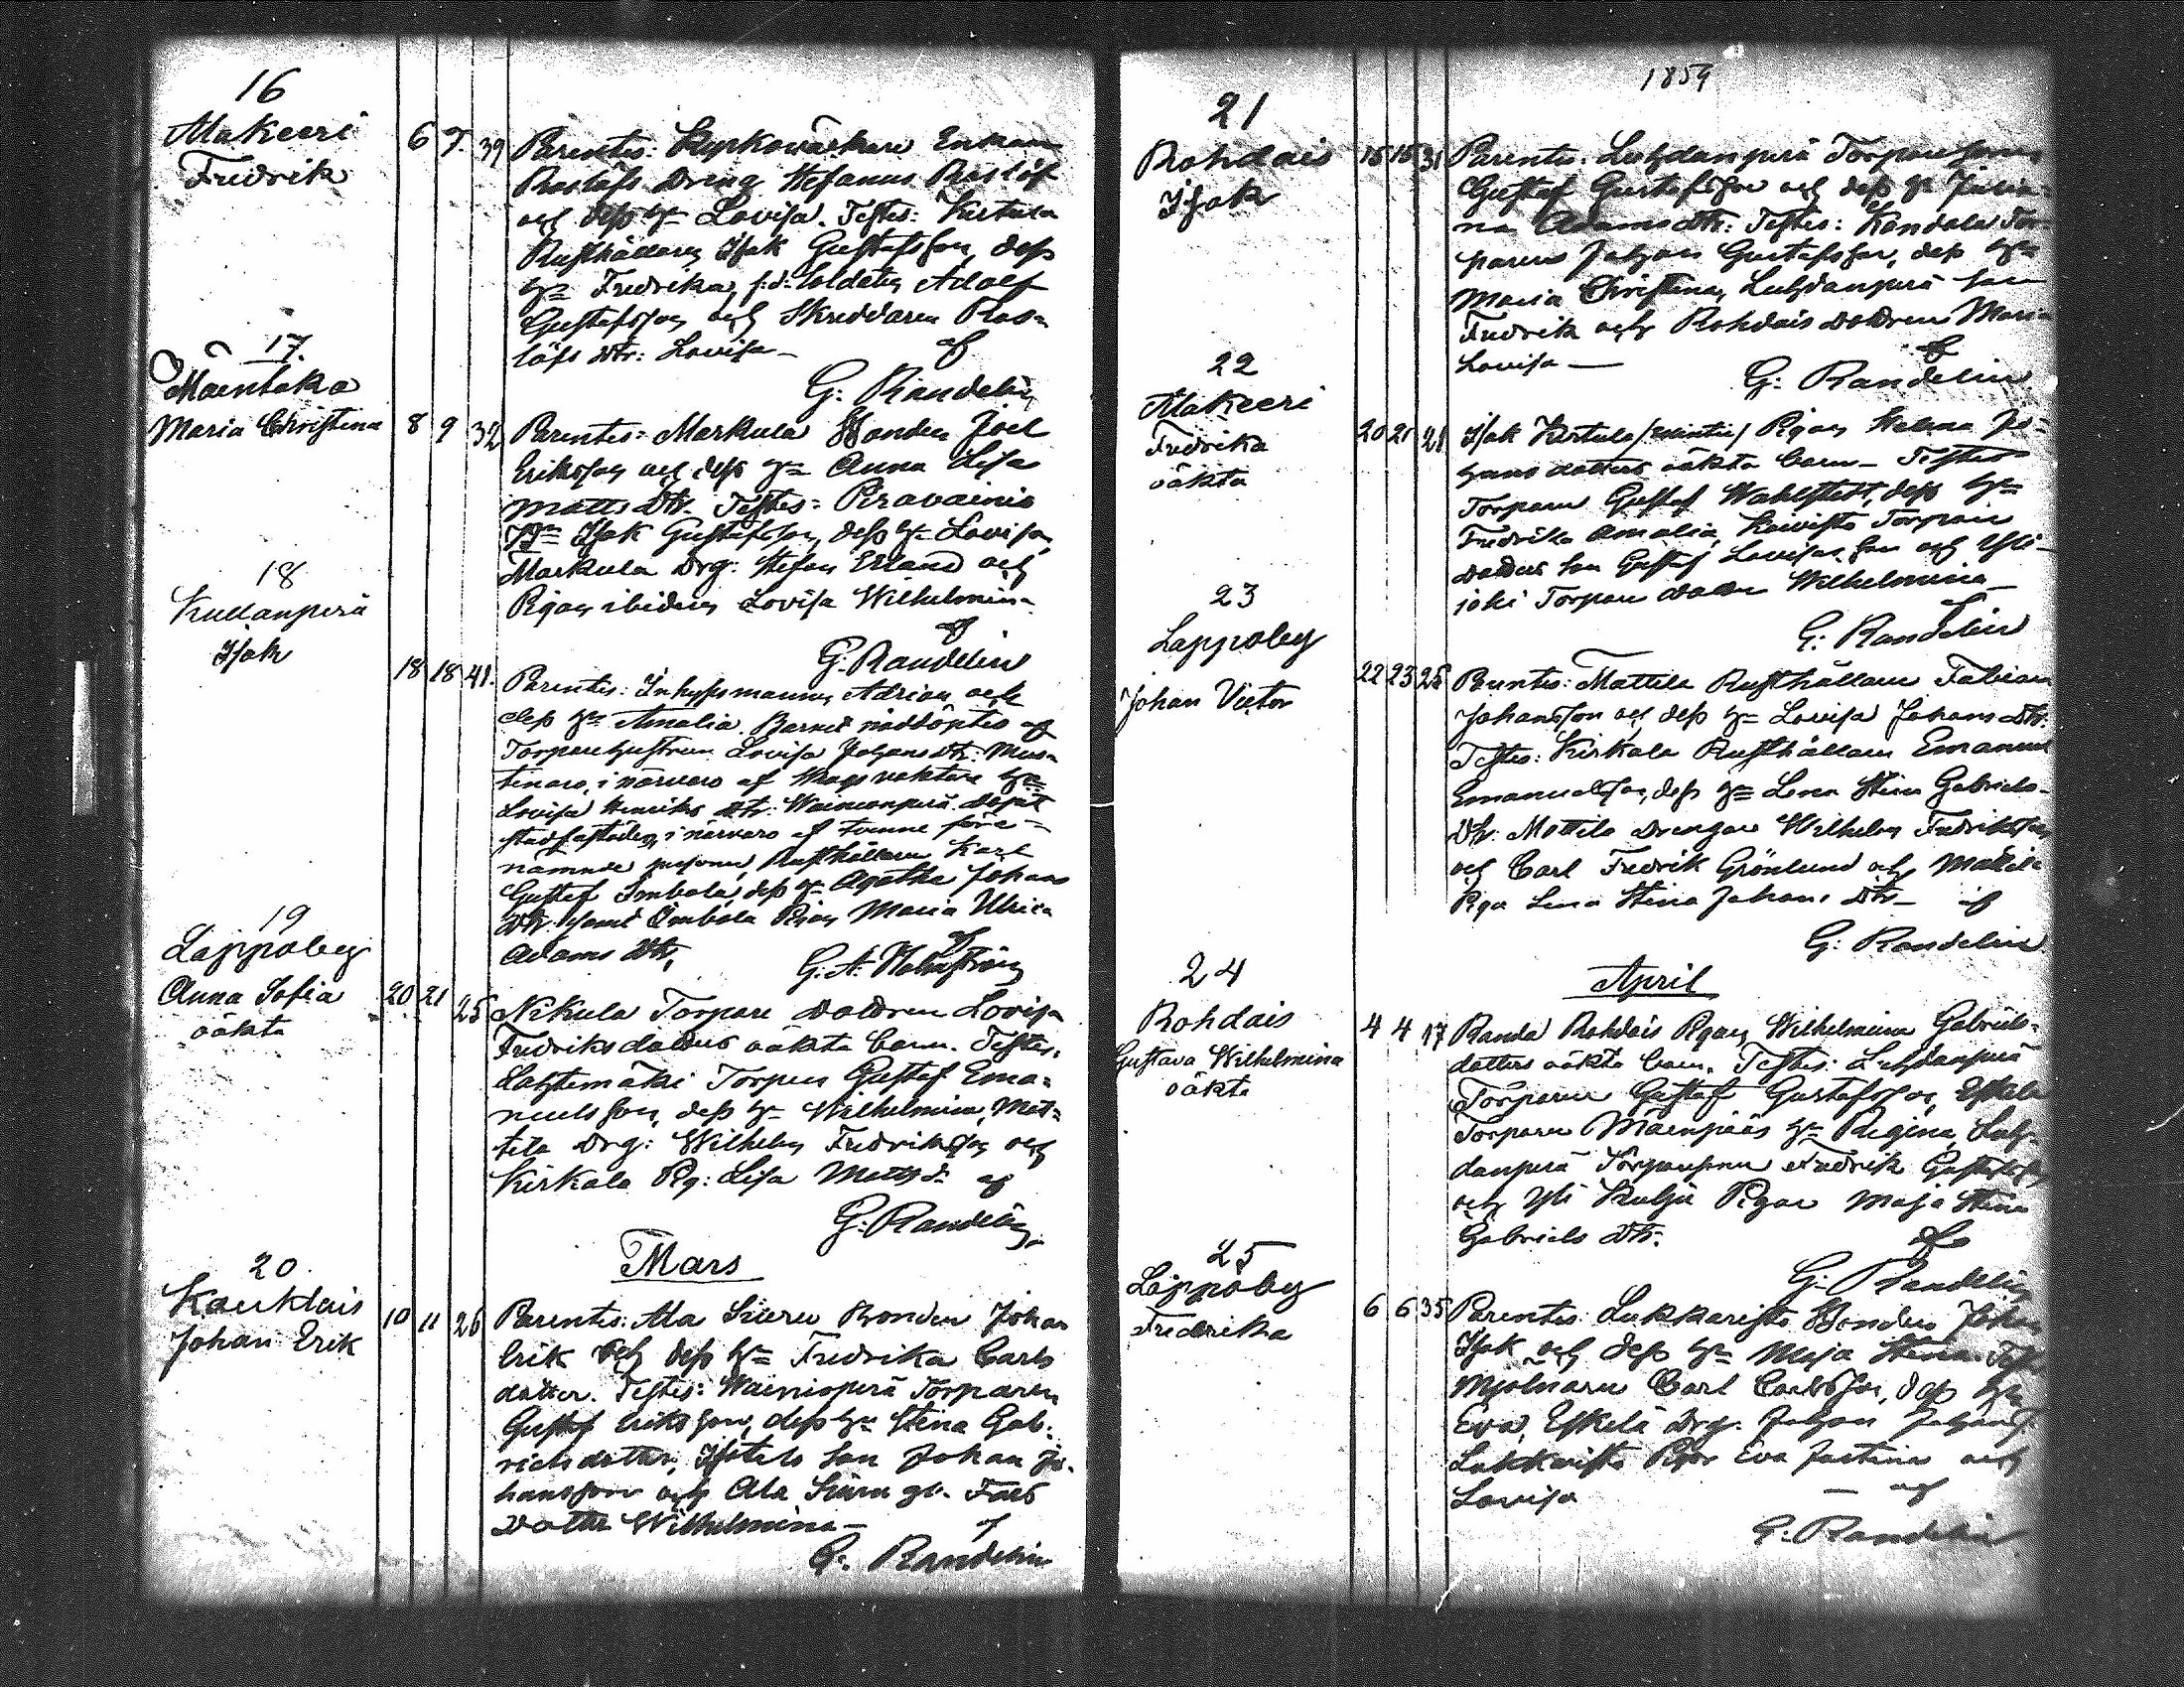 16
Makeeri
Fredrik
6 7. 39
Parentes: Kyrkowäktare Enkan
Roslöfs Dreng Stefanus Roslöf
och dess h: Lovisa. Testes: Kertula
Rusthållaren Isak Gustafsson, dess
h: Fredrika, f.d. Soldaten Adolf
Gustafsson och Skreddaren Ros-
löfs dtr: Lovisa — af
G: Randelin
17.
Mäentaka
Maria Christina
8 9 32
Parentes: Markula Bonden Joel
Eriksson och dess h: Anna Lisa
Matts dtr. Testes: Peravainio
Isak Gustafsson, dess h: Lovisa,
Markula Drg: Stefan Erland och
Pigan ibidem Lovisa Wilhelmina
af
G. Randelin
18
Kullanperä
Isak
18 18 41.
Parentes: Inhysesmannen Adrian och
dess h: Amalia. Barnet nöddöptes af
Torparehustrun Lovisa Johans dtr: Mus-
tinaro, i närvaro af Skogsvaktare h:
Lovisa Henriks dtr: Wainionperä. Dopet
stadfästades i närvaro af tvenne före-
nämnde personer, Rusthållaren Karl
Gustaf Imbala, dess h: Agatha Johans
dtr. samt Imbala Pigan Maria Ulrica
Adams dtr, af
G. A. Holmström
19
Lappoby
Anna Sofia
oäkta
20 21 25
Nikula Torpare dottren Lovisa
Fredriksdotters oäkta barn. Testes.
Lahtemäki Torparen Gustaf Ema-
nuelsson, dess h: Wilhelmina, Mat-
tila Drg: Wilhelm Fredriksson och
Kirkala Pg: Lisa Mattsd: af
G: Randelin
Mars
20
Kauklais
Johan Erik
10 11 26
Parentes: Ala Sieru Bonden Johan
Erik och dess h: Fredrika Carls
dotter. Testes: Wainioperä Torparen
Gustaf Eriksson, dess h: Stina Gab-
rielsdotter, Isotalo Son Johan Jo-
hansson och Ala Sieru
Dotter Wilhelmina — af
G: Randelin
1859
21
Rohdais
Isak
15 15 31
Parentes: Luhdanperä Torparesonen
Gustaf Gustafsson och dess h: Julia-
na Adamsdtr: Testes: Kandola Tor-
paren Johan Gustafsson, dess h:
Maria Christina, Luhdanperä son
Fredrik och Rohdais dottren Maria
Lovisa — af
G: Randelin
22
Makeeri
Fredrika
oäkta
20 21 21
Isak Kertula Pigan Helena Jo-
hansdotters oäkta barn — Testes
Torparen Gustaf Wahlstedt, dess h:
Fredrika Amalia, Koivisto Torpare
dotters son Gustaf Lovisasson och Yli-
joki Torpare dotter Wilhelmina —
G: Randelin
23
Lappoby
Johan Victor
22 23 25
Parentes: Mattila Rusthållare Fabian
Johansson och dess h: Lovisa Johans dtr.
Testes: Kirkala Rusthållare Emanuel
Emanuelsson, dess h: Lena Stina Gabriels-
dtr. Mattila Drengar Wilhelm Fredriksson
och Carl Fredrik Grönlund och Mattila
Piga Lena Stina Johans dtr — af
G: Randelin
April
24
Rohdais
Gustava Wilhelmina
oäkta
4 4 17
Randa Rohdais Pigan Wilhelmina Gabriels-
dotters oäkta barn. Testes: Luhdanperä
Torparen Gustaf Gustafsson, Eskela
Torparen Mäenpääs h: Regina, Luh-
danperä Torparesonen Fredrik Gustafsson
och Yli Kulju Pigan Maja Stina
Gabriels dtr. af
G: Randelin
25
Lappoby
Fredrika
6 6 35
Parentes: Lukkaristo Bonden Johan
Isak och dess h: Maja Stina. Test
Mjölnaren Carl Carlsson, dess h:
Eva, Eskela Drg. Johan Johans
Lukkaristo Pigor Eva Justina och
Lovisa — af
G: Randelin